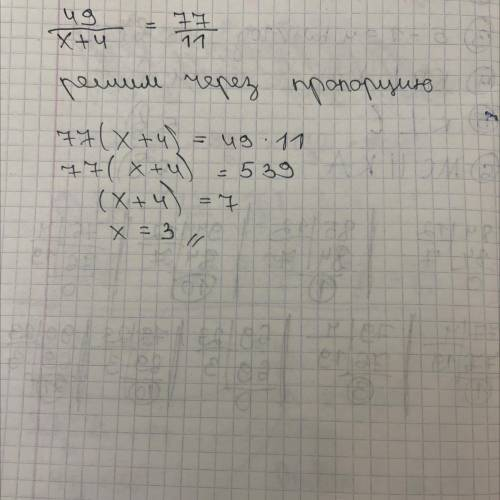 49/(x+4) = 77/11
решим через пропорцию
77(x+4) = 49·11
77(x+4) = 539
(x+4) = 7
x = 3 //